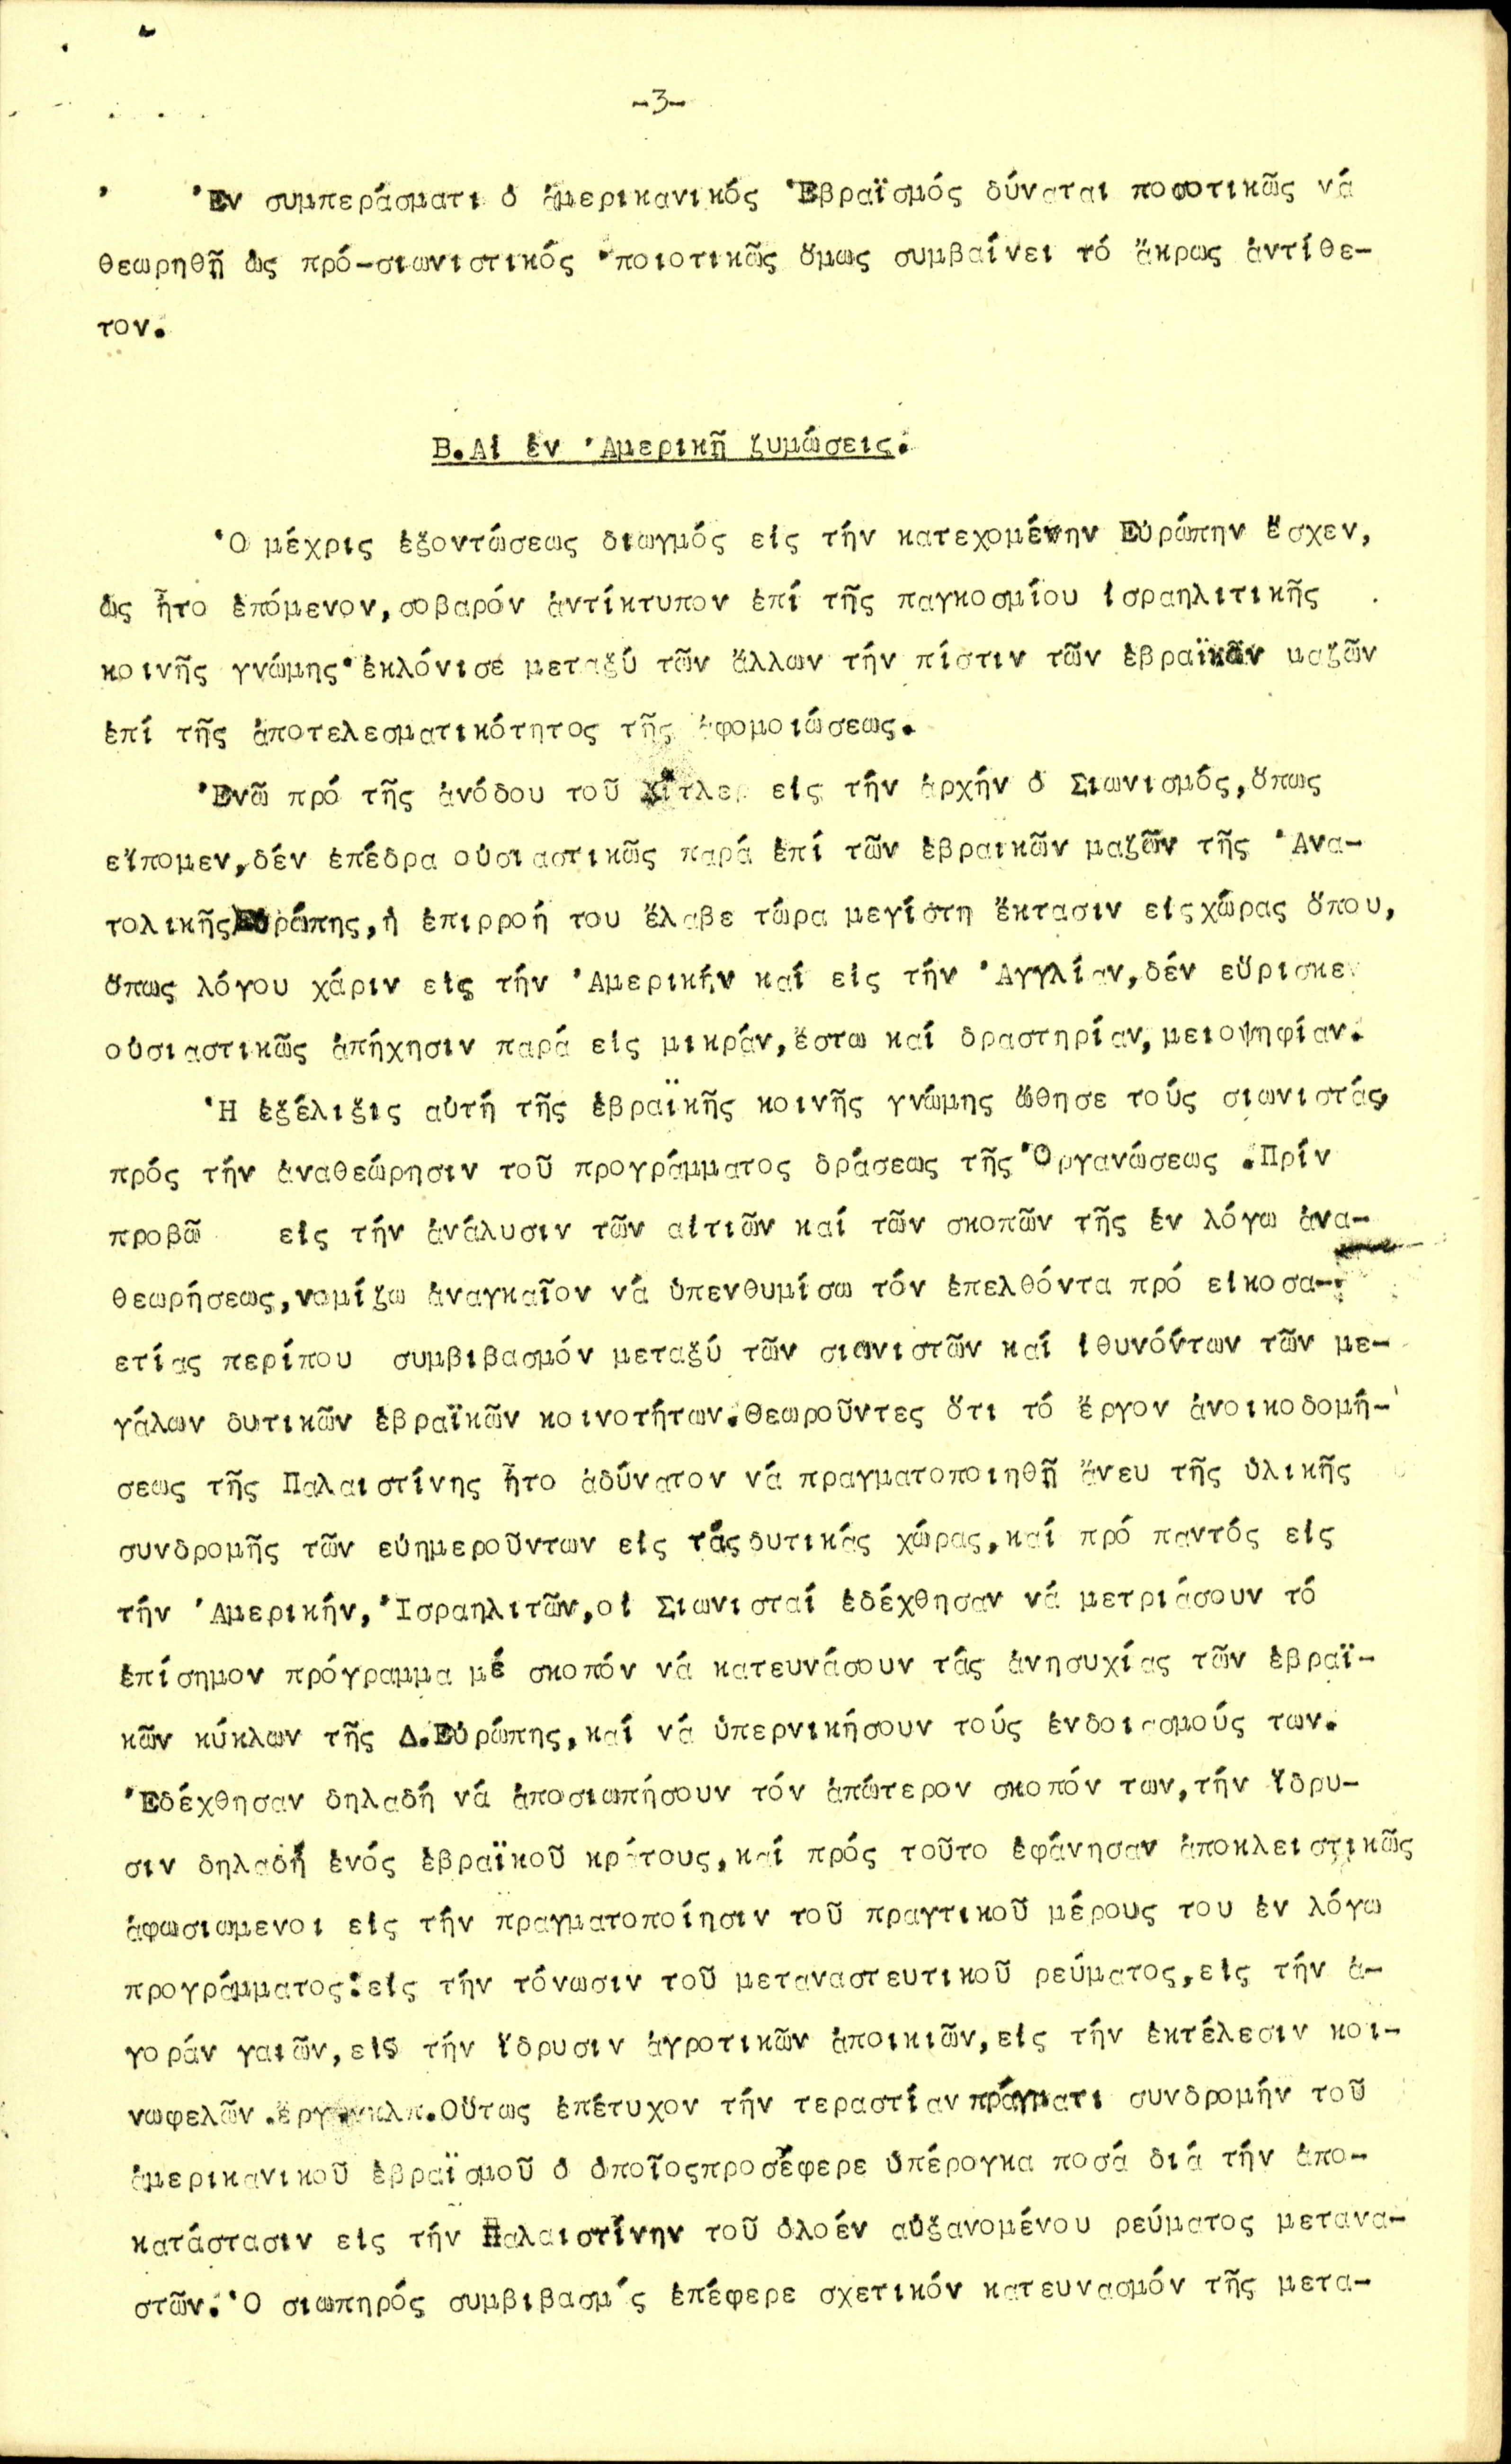 -3-
Ἐν συμπεράσματι ὁ ἀμερικανικός Ἑβραϊσμός δύναται ποσοτικῶς νά
θεωρηθῇ ὡς πρό-σιωνιστικός · ποιοτικῶς ὅμως συμβαίνει τό ἄκρως ἀντίθε-
τον.
Β.Αἱ ἐν Ἀμερικῇ ζυμώσεις.
Ὁ μέχρις ἐξοντώσεως διωγμός εἰς τήν κατεχομένην Εὐρώπην ἔσχεν,
ὡς ἦτο ἑπόμενον,σοβαρόν ἀντίκτυπον ἐπί τῆς παγκοσμίου ἰσραηλιτικῆς
κοινῆς γνώμης·ἐκλόνισε μεταξύ τῶν ἄλλων τήν πίστιν τῶν ἑβραϊκῶν μαζῶν
ἐπί τῆς ἀποτελεσματικότητος τῆς ἀφομοιώσεως.
Ἐνῶ πρό τῆς ἀνόδου τοῦ Χίτλερ εἰς τήν ἀρχήν ὁ Σιωνισμός,ὅπως
εἴπομεν,δέν ἐπέδρα οὐσιαστικῶς παρά ἐπί τῶν ἑβραικῶν μαζῶν τῆς Ἀνα-
τολικῆς Εὐρώπης,ἡ ἐπιρροή του ἔλαβε τώρα μεγίστη ἔκτασιν εἰς χώρας ὅπου,
ὅπως λόγου χάριν εἰς τήν Ἀμερικήν καί εἰς τήν Ἀγγλίαν,δέν εὕρισκεν
οὐσιαστικῶς ἀπήχησιν παρά εἰς μικράν,ἔστω καί δραστηρίαν,μειοψηφίαν.
Ἡ ἐξέλιξις αὐτή τῆς ἑβραϊκῆς κοινῆς γνώμης ὤθησε τούς σιωνιστάς,
πρός τήν ἀναθεώρησιν τοῦ προγράμματος δράσεως τῆς Ὀργανώσεως .Πρίν
προβῶ εἰς τήν ἀνάλυσιν τῶν αἰτιῶν καί τῶν σκοπῶν τῆς ἐν λόγω ἀνα-
θεωρήσεως,νομίζω ἀναγκαῖον νά ὑπενθυμίσω τόν ἐπελθόντα πρό εἰκοσα-
ετίας περίπου συμβιβασμόν μεταξύ τῶν σιωνιστῶν καί ἰθυνόντων τῶν με-
γάλων δυτικῶν ἑβραϊκῶν κοινοτήτων.Θεωροῦντες ὅτι τό ἔργον ἀνοικοδομή-
σεως τῆς Παλαιστίνης ἦτο ἀδύνατον νά πραγματοποιηθῇ ἄνευ τῆς ὑλικῆς
συνδρομῆς τῶν εὐημερούντων εἰς τάς δυτικάς χώρας,καί πρό παντός εἰς
τήν Ἀμερικήν,Ἰσραηλιτῶν,οἱ Σιωνισταί ἐδέχθησαν νά μετριάσουν τό
ἐπίσημον πρόγραμμα μέ σκοπόν νά κατευνάσουν τάς ἀνησυχίας τῶν ἑβραϊ-
κῶν κύκλων τῆς Δ.Εὐρώπης,καί νά ὑπερνικήσουν τούς ἐνδοιασμούς των.
Ἐδέχθησαν δηλαδή νά ἀποσιωπήσουν τόν ἀπώτερον σκοπόν των,τήν ἵδρυ-
σιν δηλαδή ἑνός ἑβραϊκοῦ κράτους,καί πρός τοῦτο ἐφάνησαν ἀποκλειστικῶς
ἀφωσιωμενοι εἰς τήν πραγματοποίησιν τοῦ πραγτικοῦ μέρους του ἐν λόγω
προγράμματος:εἰς τήν τόνωσιν τοῦ μεταναστευτικοῦ ρεύματος,εἰς τήν ἀ-
γοράν γαιῶν,εἰς τήν ἵδρυσιν ἀγροτικῶν ἀποικιῶν,εἰς τήν ἐκτέλεσιν κοι-
νωφελῶν .ἔργων κλπ.Οὕτως ἐπέτυχον τήν τεραστίαν πράγματι συνδρομήν τοῦ
ἀμερικανικοῦ ἑβραϊσμοῦ ὁ ὁποῖος προσέφερε ὑπέρογκα ποσά διά τήν ἀπο-
κατάστασιν εἰς τήν Παλαιστίνην τοῦ ὁλοέν αὐξανομένου ρεύματος μετανα-
στῶν.Ὁ σιωπηρός συμβιβασμός ἐπέφερε σχετικόν κατευνασμόν τῆς μετα-